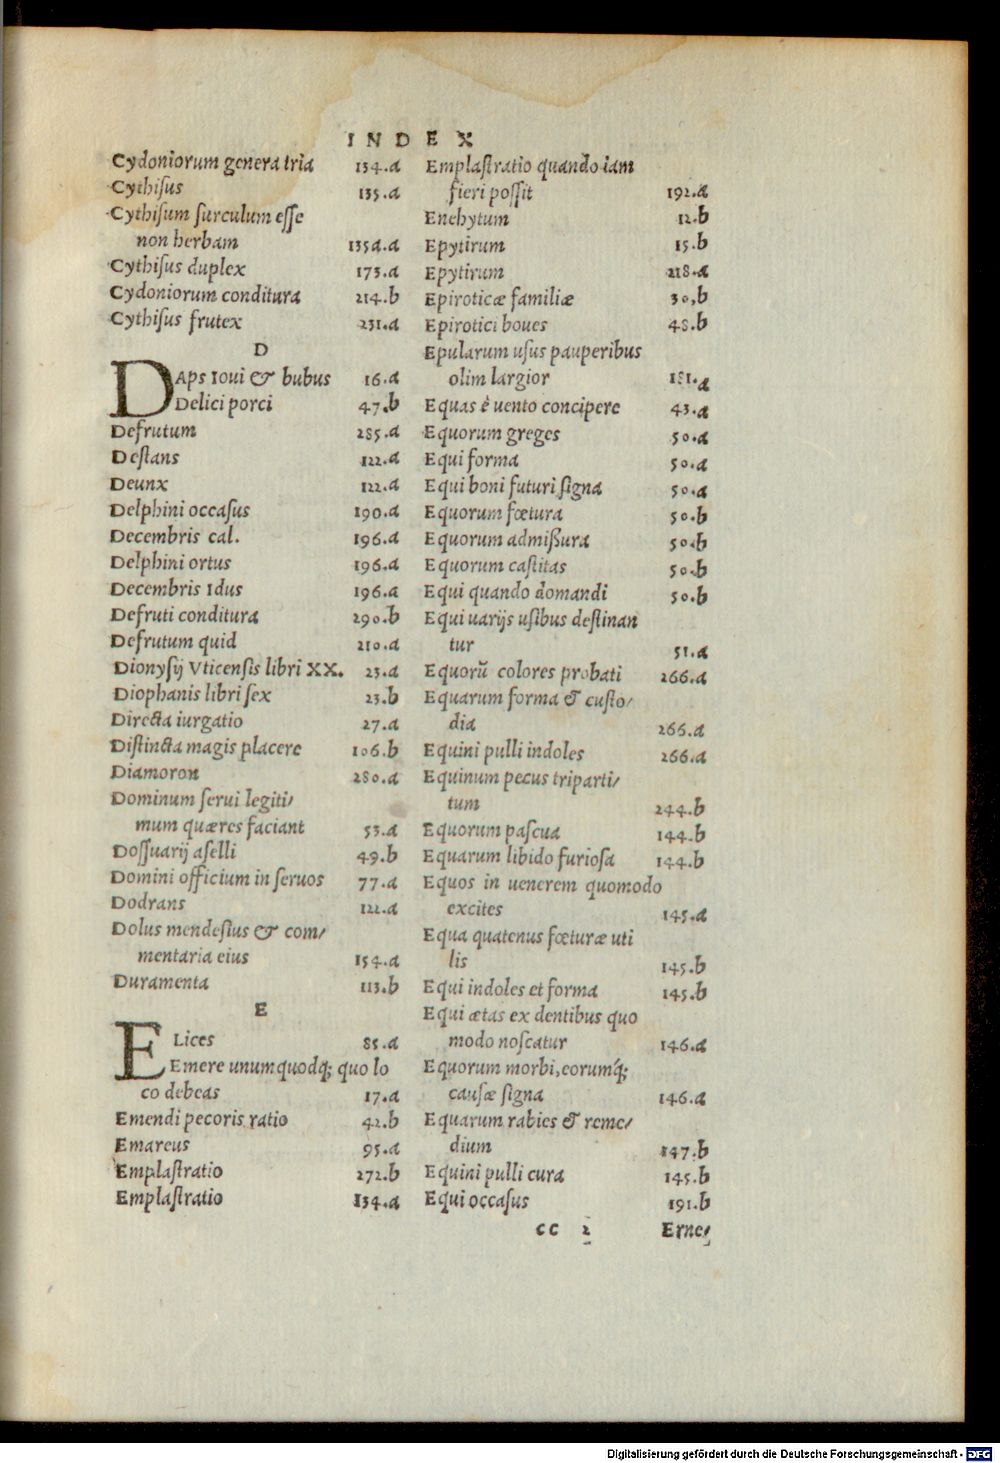 INDEX
Cydoniorum genera tria 134.a
Cythiſus 135.a
Cythiſum ſurculum eſſe
non herbam 135a.a
Cythiſus duplex 173.a
Cydoniorum conditura 214.b
Cythiſus frutex 231.a
D
DAps Ioui & bubus 16.a
Delici porci 47.b
Defrutum 285.a
Deſtans 122.a
Deunx 122.a
Delphini occaſus 190.a
Decembris cal. 196.a
Delphini ortus 196.a
Decembris Idus 196.a
Defruti conditura 290.b
Defrutum quid 210.a
Dionyſij Vticenſis libri XX. 23.a
Diophanis libri ſex 23.b
Directa iurgatio 27.a
Diſtincta magis placere 106.b
Diamoron 280.a
Dominum ſerui legiti/
mum quæres faciant 53.a
Doſſuarij aſelli 49.b
Domini officium in ſeruos 77.a
Dodrans 122.a
Dolus mendeſius & com/
mentaria eius 154.a
Duramenta 113.b
E
ELices 85.a
Emere unumquodq; quo lo
co debeas 17.a
Emendi pecoris ratio 42.b
Emareus 95.a
Emplaſtratio 272.b
Emplaſtratio 134.a
Emplaſtratio quando iam
fieri poſſit 192.a
Enchytum 12.b
Epytirum 15.b
Epytirum 218.a
Epiroticæ familiæ 30,b
Epirotici boues 48.b
Epularum uſus pauperibus
olim largior 181.a
Equas è uento concipere 43.a
Equorum greges 50.a
Equi forma 50.a
Equi boni futuri ſigna 50.a
Equorum fœtura 50.b
Equorum admißura 50.b
Equorum caſtitas 50.b
Equi quando domandi 50.b
Equi uarijs uſibus deſtinan
tur 51.a
Equorũ colores probati 266.a
Equarum forma & cuſto/
dia 266.a
Equini pulli indoles 266.a
Equinum pecus triparti/
tum 244.b
Equorum paſcua 144.b
Equarum libido furioſa 144.b
Equos in uenerem quomodo
excites 145.a
Equa quatenus fœturæ uti
lis 145.b
Equi indoles et forma 145.b
Equi ætas ex dentibus quo
modo noſcatur 146.a
Equorum morbi, eorumq́;
cauſæ ſigna 146.a
Equarum rabies & reme/
dium 147.b
Equini pulli cura 145.b
Equi occaſus 191.b
cc 2 Erne/
Digitalisierung gefördert durch die Deutsche Forschungsgemeinschaft - DFG